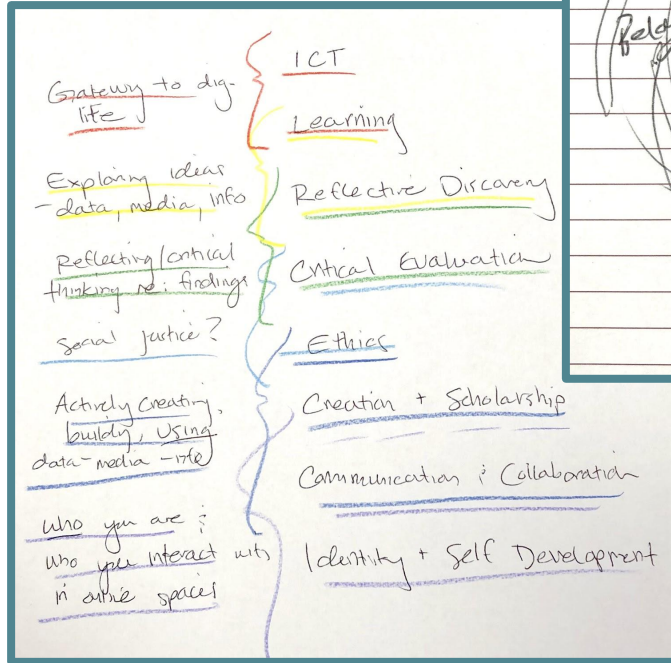 Gateway to dig-
life
Exploring ideas
- data, media, info
Reflecting/critical
thinking re: findings
Social justice?
Actively creating,
buildy, using
data-media-info
who you are &
who you interact with
in online spaces
ICT
Learning
Reflective Discovery
Critical Evaluation
Ethics
Creation + Scholarship
Communication & Collaboration
Identity + Self Development